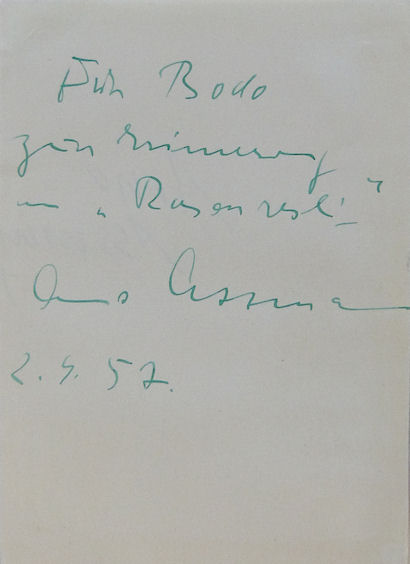 Für Bodo
zur Erinnerung
an „Rosenresli“
Arno Assmann
2. 4. 57.